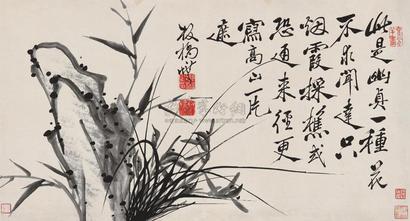 此是幽貞一種花
不求聞達只
烟霞採樵或
恐通来徑更
寫高山一片
遮
板橋燮